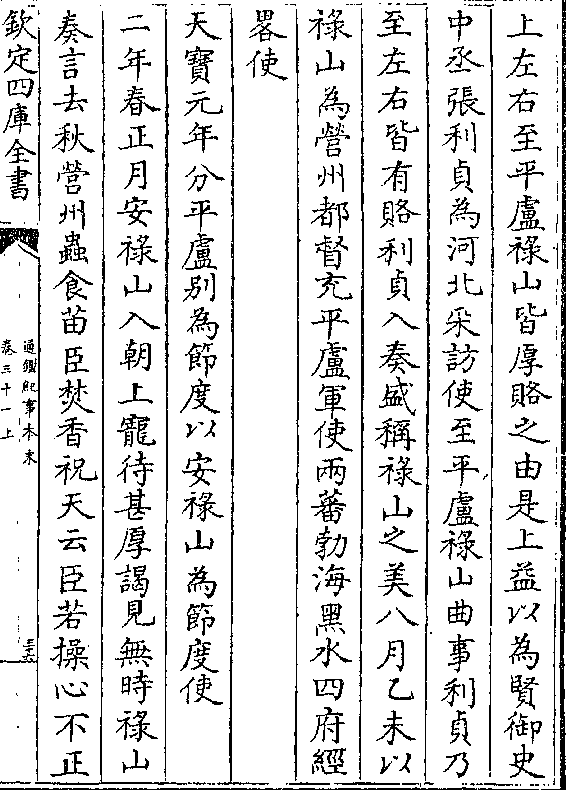 上左右至平盧祿山皆厚賂之由是上益以為賢御史
中丞張利貞為河北采訪使至平盧祿山曲事利貞乃
至左右皆有賂利貞入奏盛稱祿山之美八月乙未以
祿山為營州都督充平盧軍使兩蕃勃海黑水四府經
畧使
天寶元年分平盧別為節度以安祿山為節度使
二年春正月安祿山入朝上寵待甚厚謁見無時祿山
奏言去秋營州蟲食苗臣焚香祝天云臣若操心不正
欽定四庫全書
通鑑紀事本末
卷三十一上